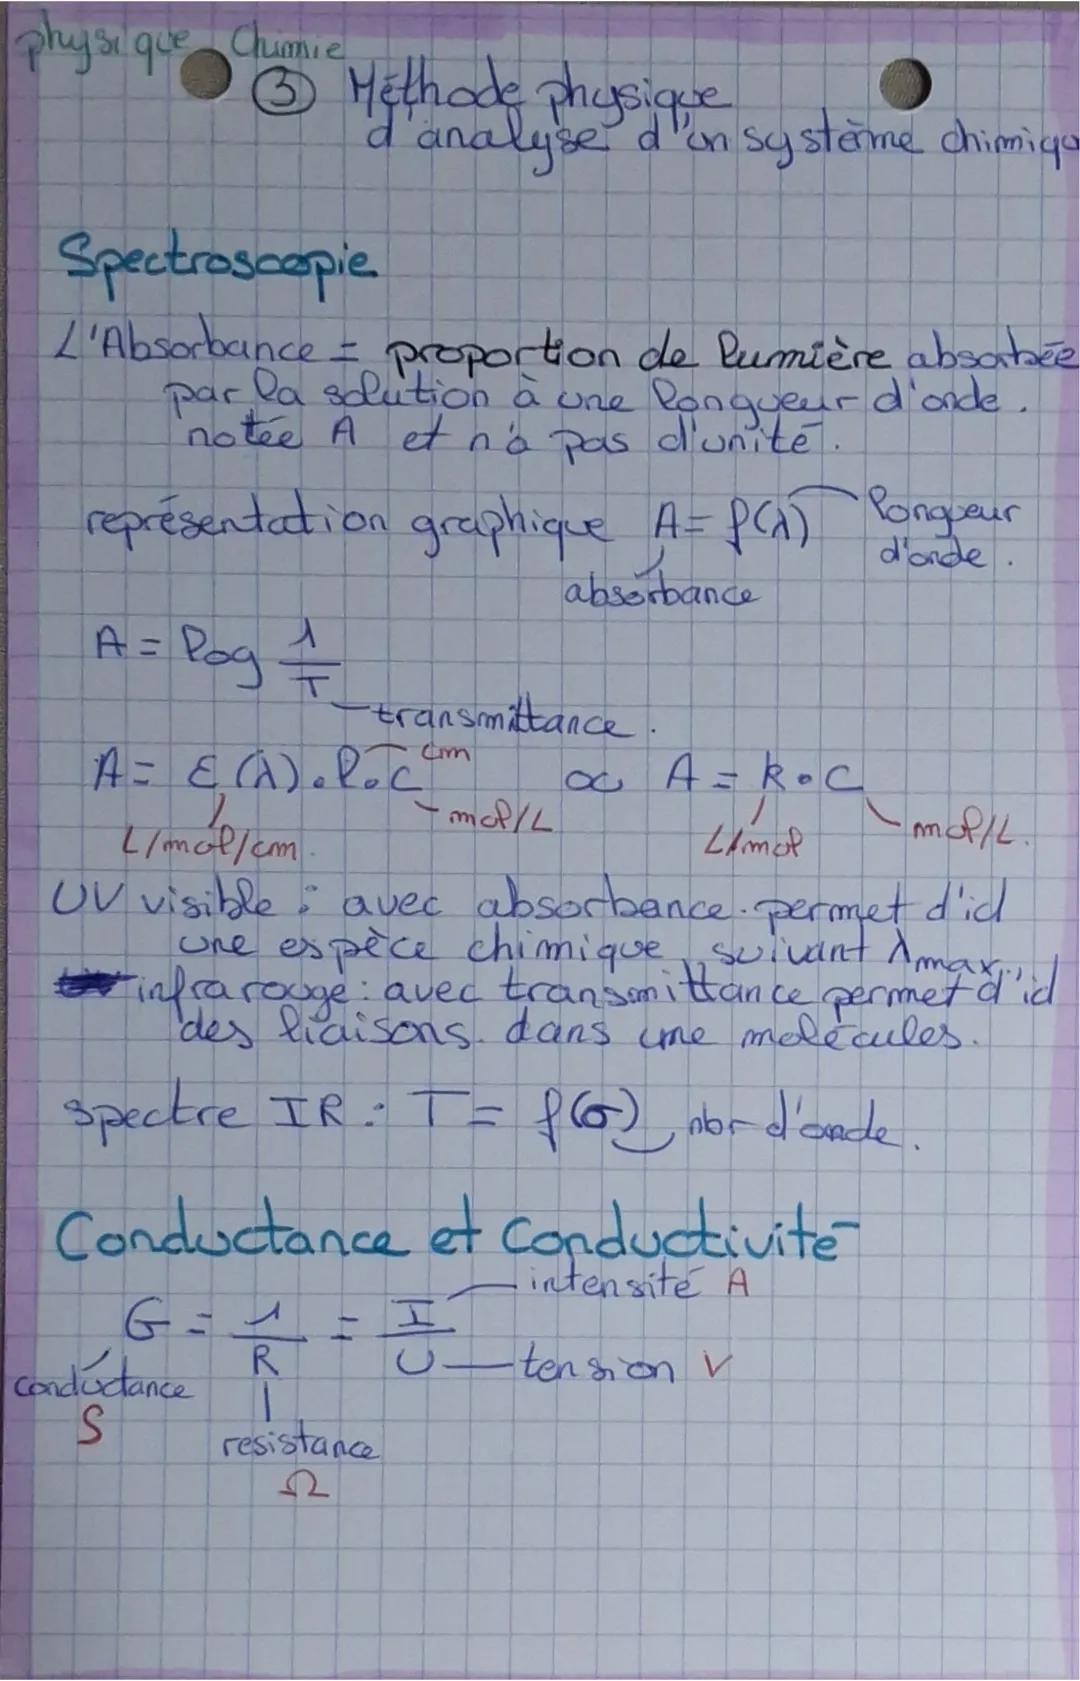 physique Chimie
③ Méthode physique
d'analyse d'un système chimiqu
Spectroscopie
L'Absorbance = proportion de lumière absorbée
par la solution à une longueur d'onde.
notée A et n'a pas d'unité.
représentation graphique A = f(λ) longueur
d'onde.
absorbance
A = log 1/T
transmittance.
A = ε(λ).l.c cm ou A = k.C
L/mol/cm. mol/L L/mol mol/L.
UV visible : avec absorbance. permet d'id
une espèce chimique, suivant λmax.
infrarouge : avec transmittance permet d'id
des liaisons. dans une molécules.
spectre IR : T = f(σ) nbr d'onde.
Conductance et Conductivité
intensité A
G = 1/R = I/U tension V
conductance
S
resistance
Ω